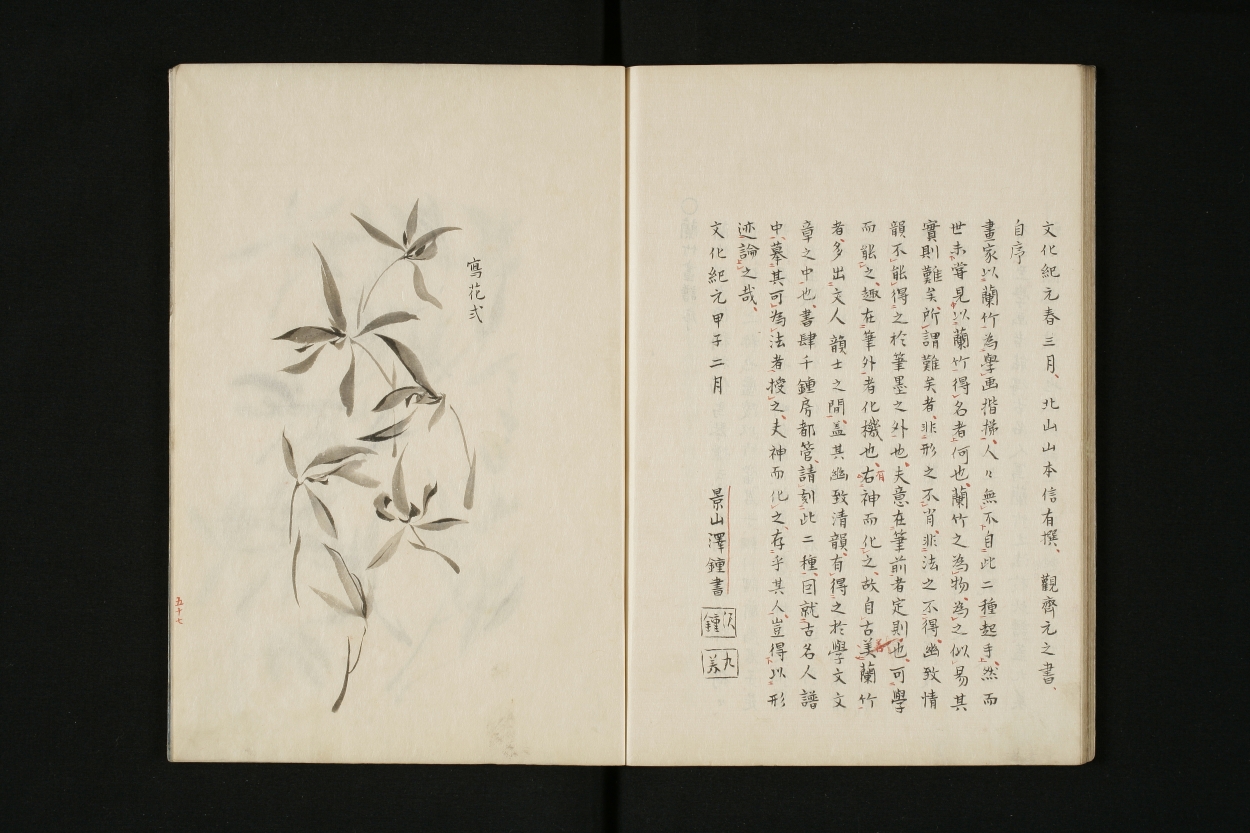 文化紀元春三月、北山山本信有撰、觀齊元之書、
自序
畫家以蘭竹為學画揩梯、人々無不自此二種起手、然而
世未嘗見以蘭竹得名者何也、蘭竹之為物、為之似易其
實則難矣、所謂難矣者、非形之不肖、非法之不得、幽致情
韻不能得之於筆墨之外也、夫意在筆前者定則也、可學
而能之、趣在筆外者化機也、右神而化之、故自古美蘭竹
有
者、多出文人韻士之間、盖其幽致清韻、有得之於學文文
章之中也、書肆千鍾房都管、請刻此二種、因就古名人譜
中、摹其可為法者授之、夫神而化之、存乎其人、豈得以形
迹論之哉、
文化紀元甲子二月
景山澤鍾書
鍾
九
寫花式
五十七